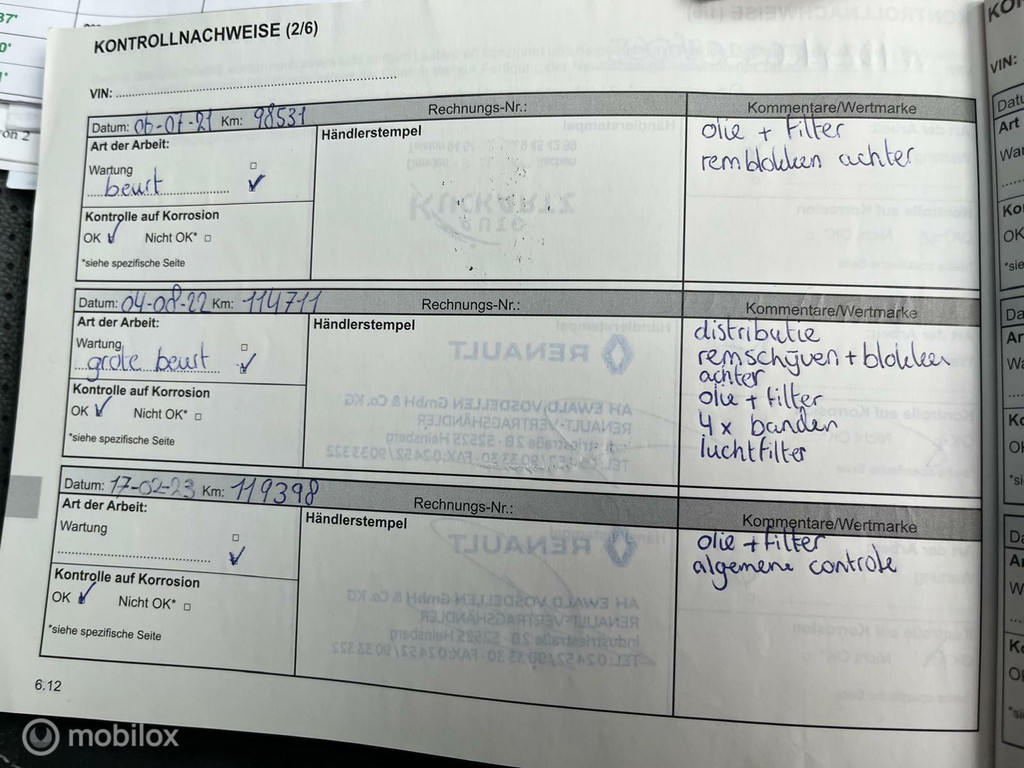 KONTROLLNACHWEISE (2/6)
VIN:
Datum: 06-07-21 Km: 98531
Rechnungs-Nr.:
Kommentare/Wertmarke
Art der Arbeit:
Händlerstempel
olie + filter
Wartung
remblokken achter
beurt
Kontrolle auf Korrosion
OK Nicht OK*
*siehe spezifische Seite
Datum: 04-08-22 Km: 114711
Rechnungs-Nr.:
Kommentare/Wertmarke
Art der Arbeit:
Händlerstempel
distributie
Wartung
remschijven + blokken
grote beurt
achter
Kontrolle auf Korrosion
olie + filter
OK Nicht OK*
4 x banden
*siehe spezifische Seite
luchtfilter
RENAULT
AH EWALD VOSDELLEN GmbH & Co. KG
RENAULT-VERTRAGSHÄNDLER
Datum: 17-02-23 Km: 119398
Rechnungs-Nr.:
Kommentare/Wertmarke
Art der Arbeit:
Händlerstempel
olie + filter
Wartung
algemene controle
Kontrolle auf Korrosion
OK Nicht OK*
*siehe spezifische Seite
RENAULT
AH EWALD VOSDELLEN GmbH & Co. KG
RENAULT-VERTRAGSHÄNDLER
Industriestraße 2B · 52525 Heinsberg
TEL. 02452/903330 · FAX: 02452/9033322
6.12
mobilox